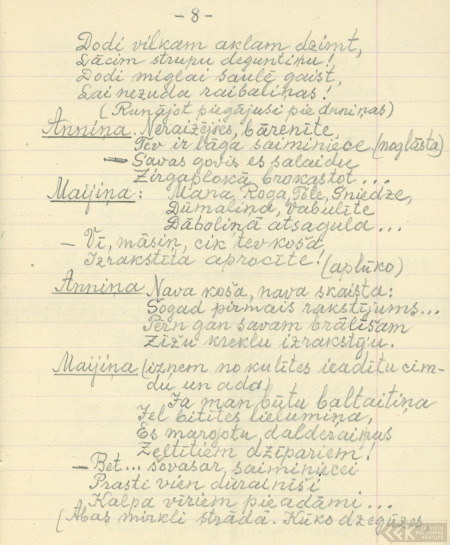 - 8 -
Dodi vilkam aklam dzimt,
Lācim strupu deguntiņu!
Dodi miglai saulē gaist,
Lai nezuda raibaliņas!
(Runājot piegājusi pie Anniņas)
Anniņa. Neraizējies, bārenīte,
Tev ir lāga saiminiece. (noglāsta)
— Savas govis es salaidu
Zirgaplokā brokastot...
Maijiņa: Mana Roga, Tōle, Sniedze,
Dūmaliņa, Vabulīte
Dāboliņā atsaguld...
— Vī, māsiņ, cik tev koša,
Izrakstīta aprocīte! (aplūko)
Anniņa Nava koša, nava skaista:
Šogad pirmais rakstījums...
Pērn gan savam brālīšam
Zīžu kreklu izrakstīju.
Maijiņa (izņem no kulītes ieadītu cim-
du un ada)
Ja man būtu baltaitiņa
Jel bitītes lielumiņa,
Es margotu, dalderaiņus
Zeltītiem dzīpariem!
— Bet... šovasar, saiminiecei
Prasti vien dūraiņiši
Kalpa vīriem pieadāmi...
(Abas mirkli strādā. Kūko dzeguzes